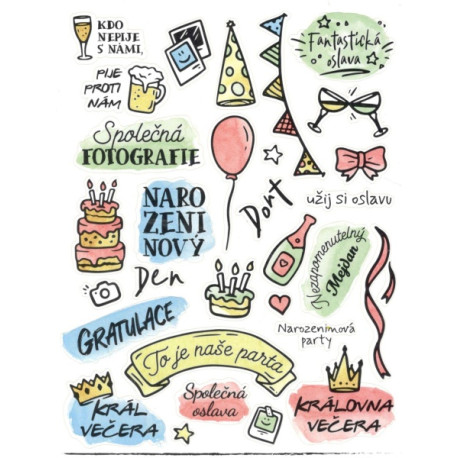 KDO
NEPIJE
S NÁMI,
PIJE
PROTI
NÁM
Fantastická
oslava
Společná
FOTOGRAFIE
NARO
ZENI
NOVÝ
Dort
užij si oslavu
Den
Nezapomenutelný
Mejdan
GRATULACE
Narozeninová
party
To je naše parta
KRÁL
VEČERA
Společná
oslava
KRÁLOVNA
VEČERA